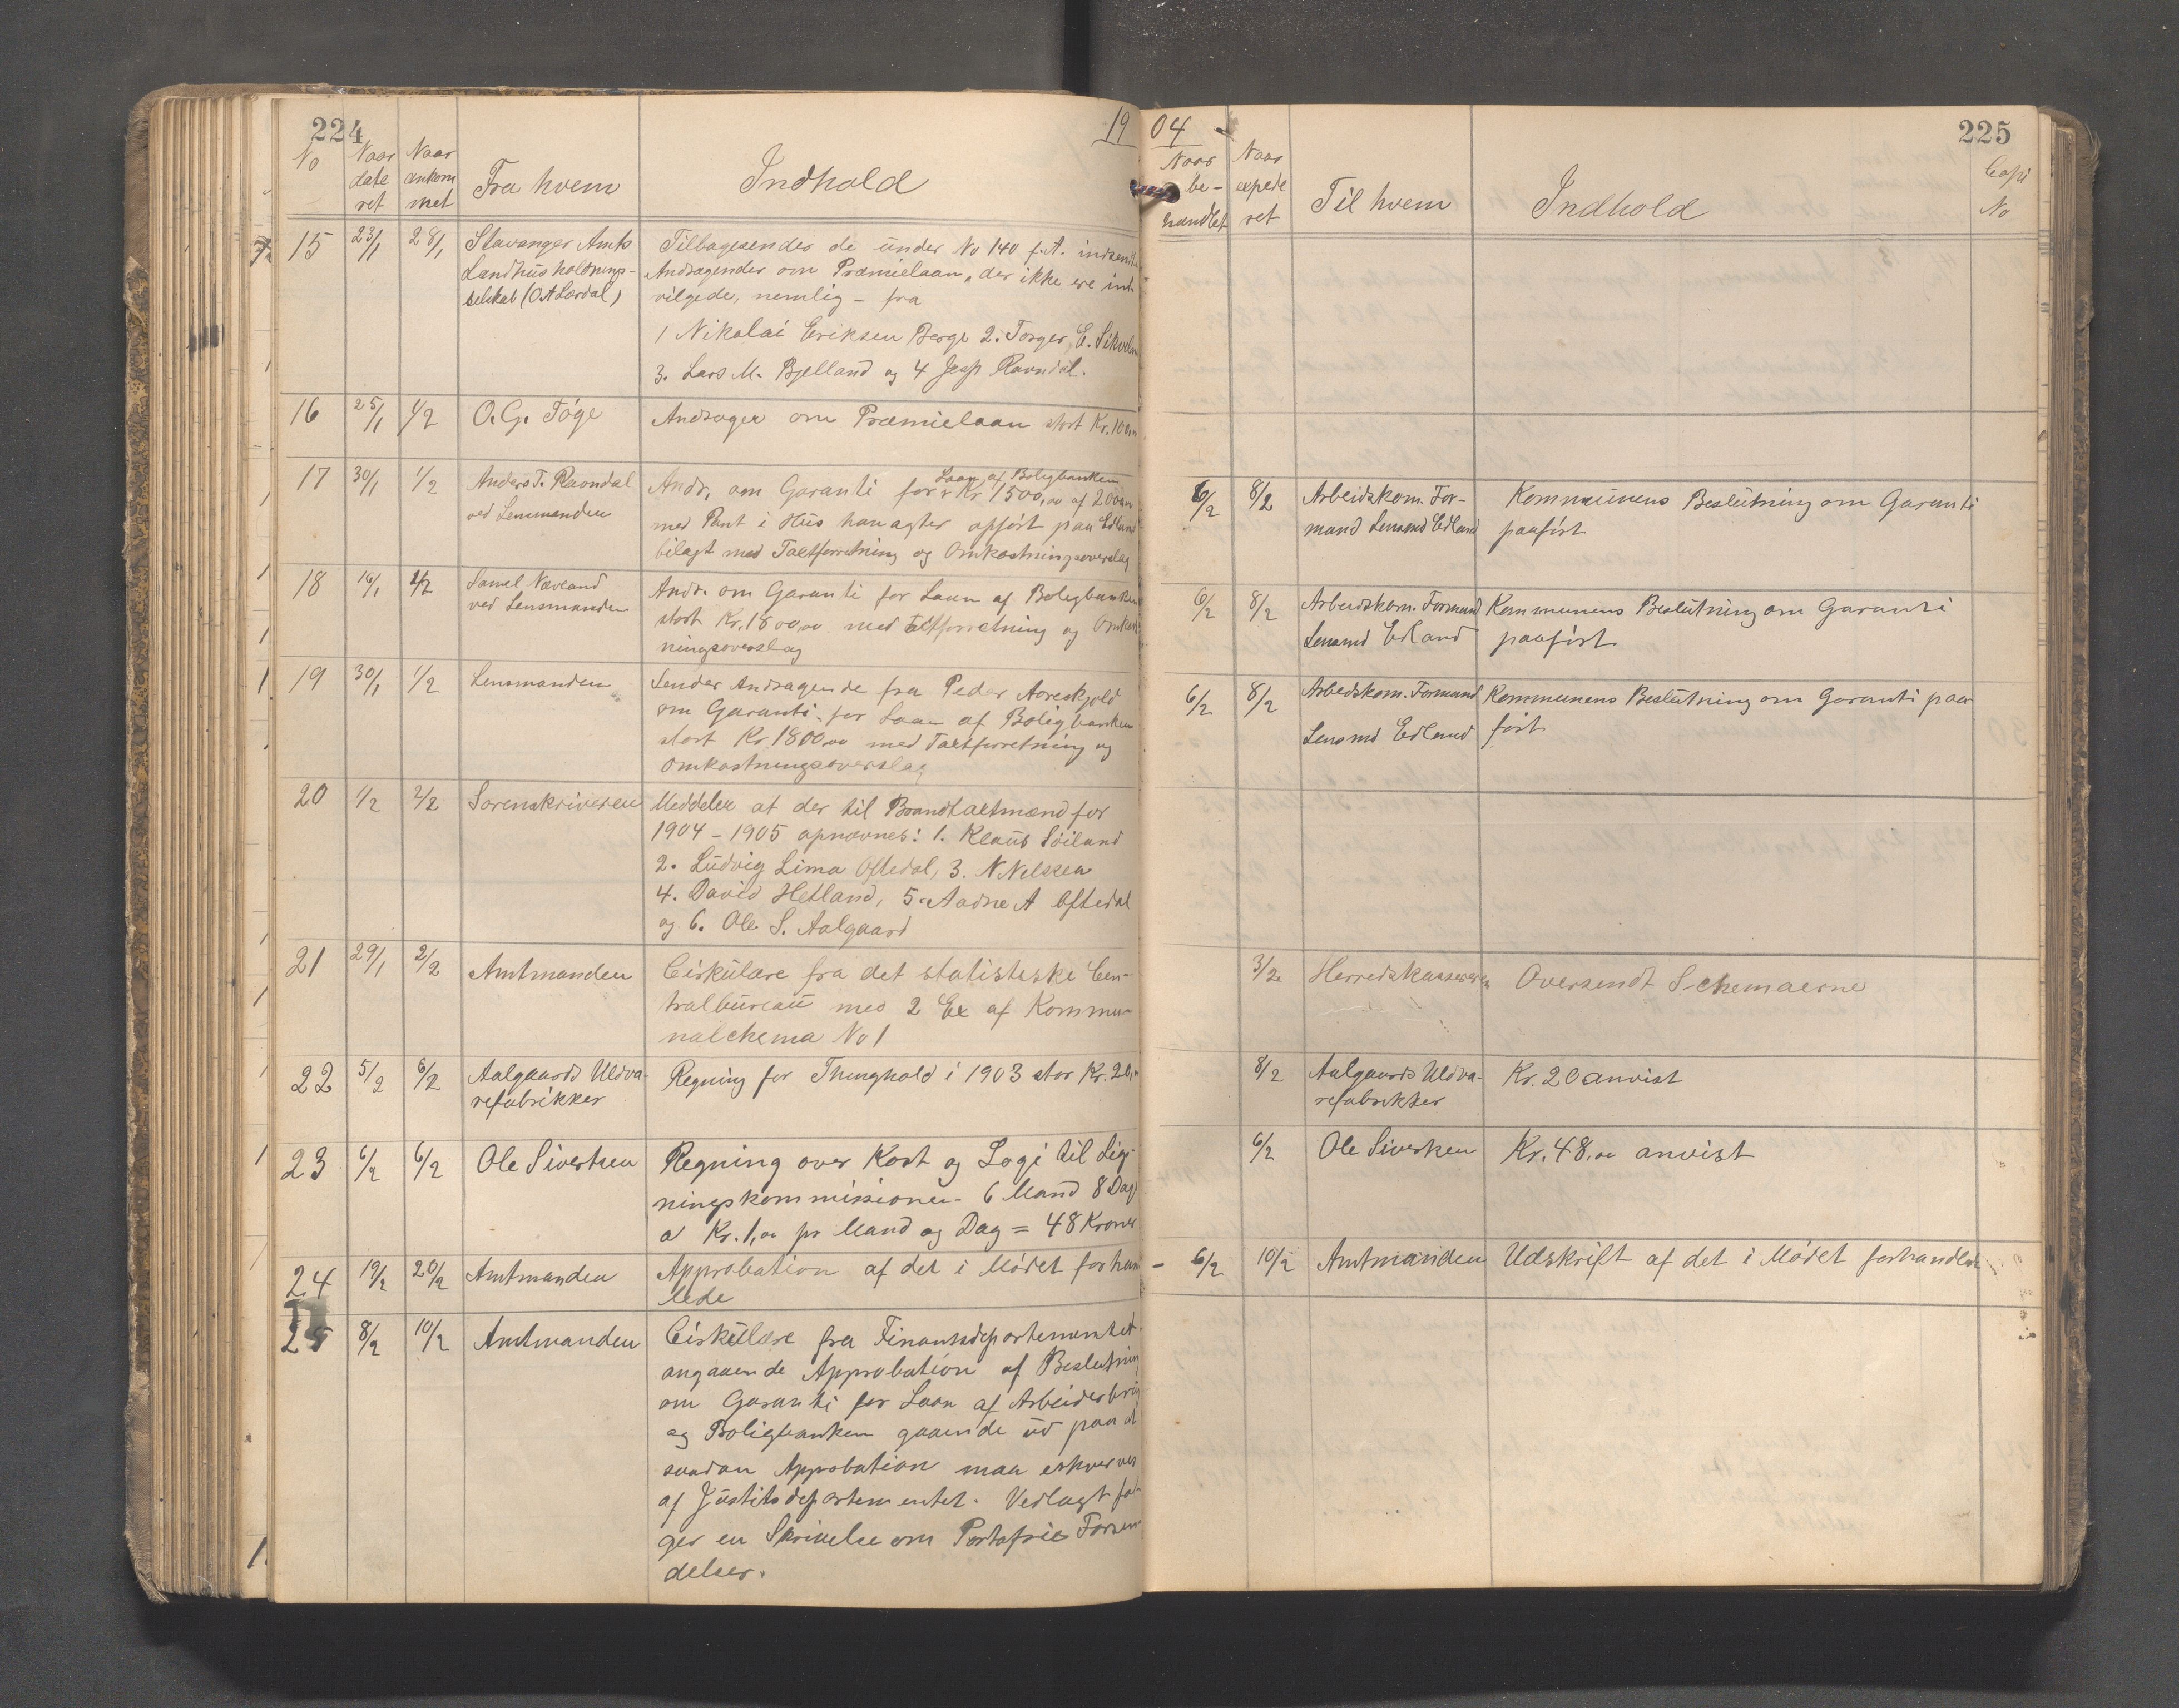 224
19
No
Naar dateret
Naar ankommet
Fra hvem
Indhold
15 23/1 28/1 Stavanger Amts Tilbagesendes de under No 140 f.A. indsendte
Landhusholdnings- Andragender om Præmielaan, der ikke ere ind-
selskab (O A Lærdal) vilgede, nemlig - fra
1 Nikolai Eriksen Berge 2. Torger E.
3. Lars M. Bjelland og 4 Ravndal.
16 25/1 1/2 O. G. Töge Andrager om Præmielaan stort Kr.
17 30/1 1/2 Anders T. Ravndal Andr. om Garanti for Laan af Boligbanken Kr 1500,00 af
ved Lensmanden med Pant i Hus han agter opført paa Edland
bilagt med Taxtforretning og Omkostningsoverslag
18 16/1 1/2 Samel Næveland Andr. om Garanti for Laan af Boligbanken
ved Lensmanden stort Kr. 1800,00 med Taxtforretning og Omkost-
ningsoverslag
19 30/1 1/2 Lensmanden Sender Andragende fra Peder Aareskjold
om Garanti for Laan af Boligbanken
stort Kr 1800,00 med Taxtforretning og
Omkostningsoverslag
20 1/2 2/2 Sorenskriveren Meddeler at der til Brandtaxtmænd for
1904 - 1905 opnævnes: 1. Klaus Söiland
2. Ludvig Lima Oftedal, 3. N Nelsen
4. David Hetland, 5. Aadne A Oftedal
og 6. Ole S. Aalgaard
21 29/1 2/2 Amtmanden Cirkulære fra det statistiske Cen-
tralbureau med 2 Ex af Kommu-
nalchema No 1
22 5/2 6/2 Aalgaards Uldva- Regning for Thinghold i 1903 stor Kr. 20,
refabrikker
23 6/2 6/2 Ole Sivertsen Regning over Kost og Logi til Lig-
ningskommissionen - 6 Mand 8 Dage
a Kr. 1,00 pr Mand og Dag = 48 Kroner
24 19/2 20/2 Amtmanden Approbation af det i Mödet forhand
lede
25 8/2 10/2 Amtmanden Cirkulære fra Finantsdepartementet
angaaende Approbation af Beslutning
om Garanti for Laan af Arbeiderbrug
og Boligbanken gaaende ud paa at
saadan Approbation maa erhverves
af Justitsdepartementet. Vedlagt föl-
ger en Skrivelse om Portofrie Forsen-
delser.
04
225
Naar behandlet
Naar expederet
Til hvem
Indhold
Copi No
6/2 8/2 Arbeidskom. For- Kommunens Beslutning om Garanti
mand Lensmd Edland paaført
6/2 8/2 Arbeidskom. Formand Kommunens Beslutning om Garanti
Lensmd Edland paaført
6/2 8/2 Arbeidskom. Formand Kommunens Beslutning om Garanti paa-
Lensmd Edland ført
3/2 Herredskassereren Oversendt Schemaerne
8/2 Aalgaards Uldva- Kr. 20 anvist
refabrikker
6/2 Ole Sivertsen Kr. 48,00 anvist
- 6/2 10/2 Amtmanden Udskrift af det i Mödet forhandlede